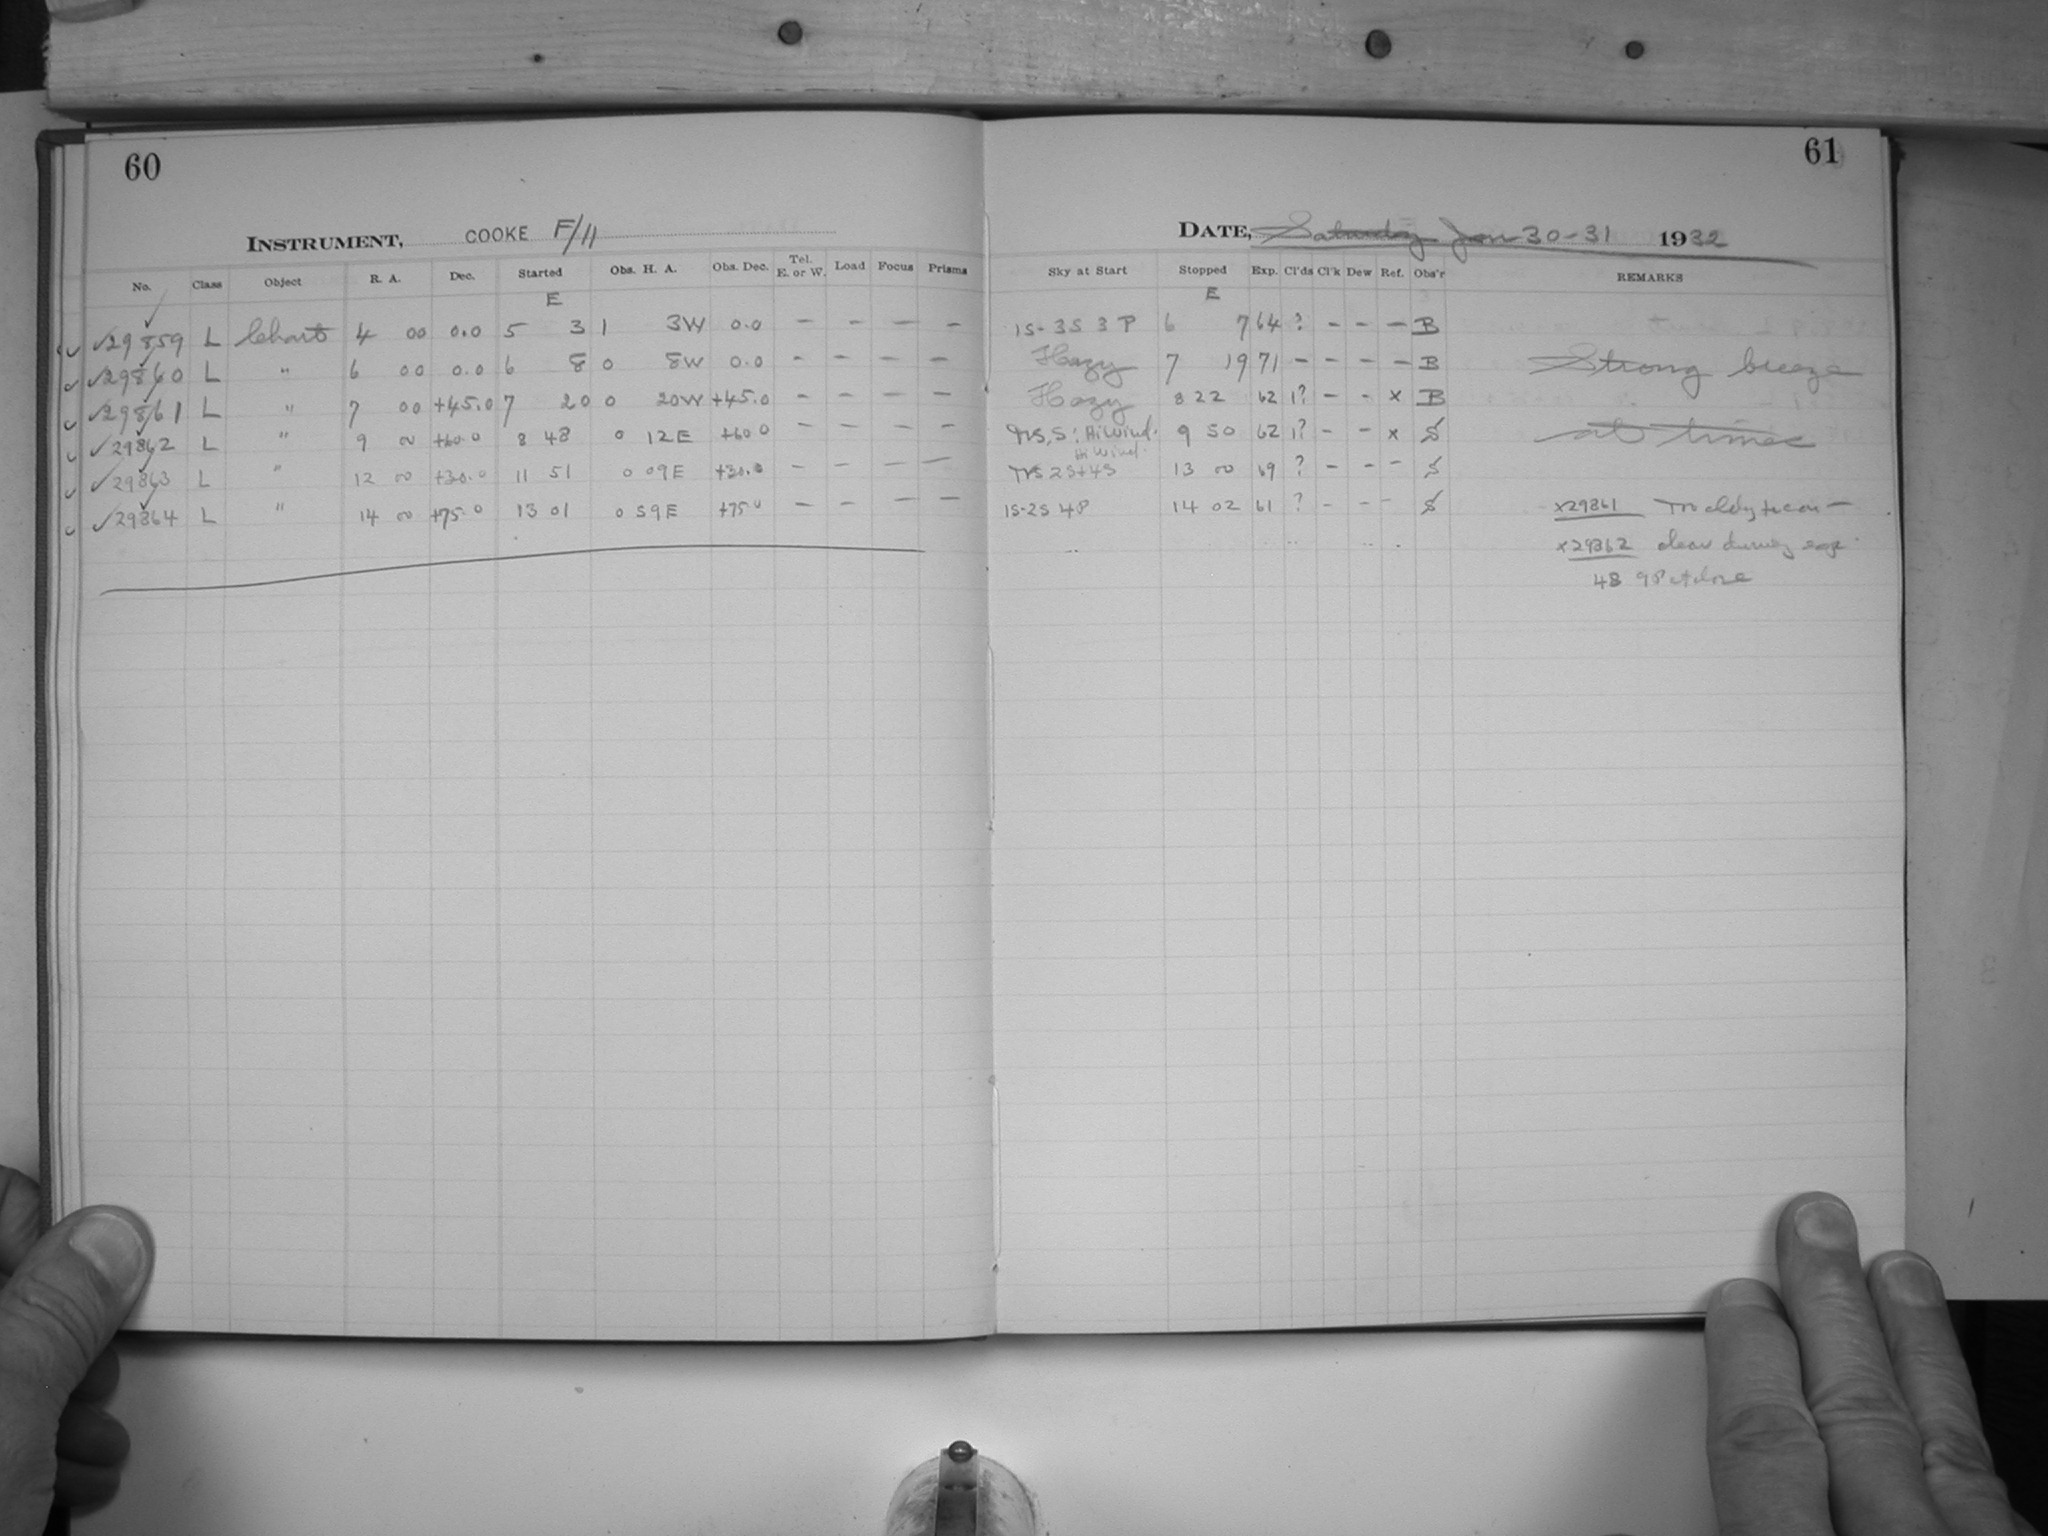 60
INSTRUMENT, COOKE F/11
No. Class Object R. A. Dec. Started Obs. H. A. Obs. Dec. Tel. E. or W. Load Focus Prisms
E
29859 L Chart 4 00 0.0 5 3 1 3W 0.0 – – – –
29860 L " 6 00 0.0 6 8 0 8W 0.0 – – – –
29861 L " 7 00 +45.0 7 20 0 20W +45.0 – – – –
29862 L " 9 00 +60.0 8 48 0 12E +60 0 – – – –
29863 L " 12 00 +30.0 11 51 0 09E +30.0 – – – –
29864 L " 14 00 +75.0 13 01 0 59E +75 0 – – – –
61
DATE, Saturday Jan 30-31 1932
Sky at Start Stopped Exp. Cl'ds Cl'k Dew Ref. Obs'r REMARKS
E
1S-3S 3P 6 7 64 ? – – – B
Hazy 7 19 71 – – – – B Strong breeze
Hazy 8 22 62 1? – – x B
Hi Wind. 9 50 62 1? – – x S at times
Hi Wind.
2S+4S 13 00 69 ? – – – S
1S-2S 4P 14 02 61 ? – – – S x29861
x29862 clear during exp.
48 9P at close